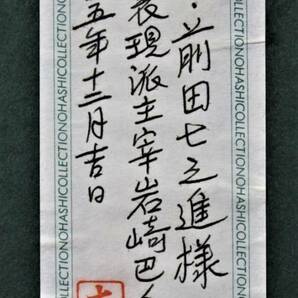 ・前田七之進様
表現派主宰岩崎巴人
五年十二月吉日
OHASHICOLLECTIONOHASHICOLLECTIONOHASHICOLLECTION
OHASHICOLLECTIONOHASHICOLLECTIONOHASHICOLLECTION